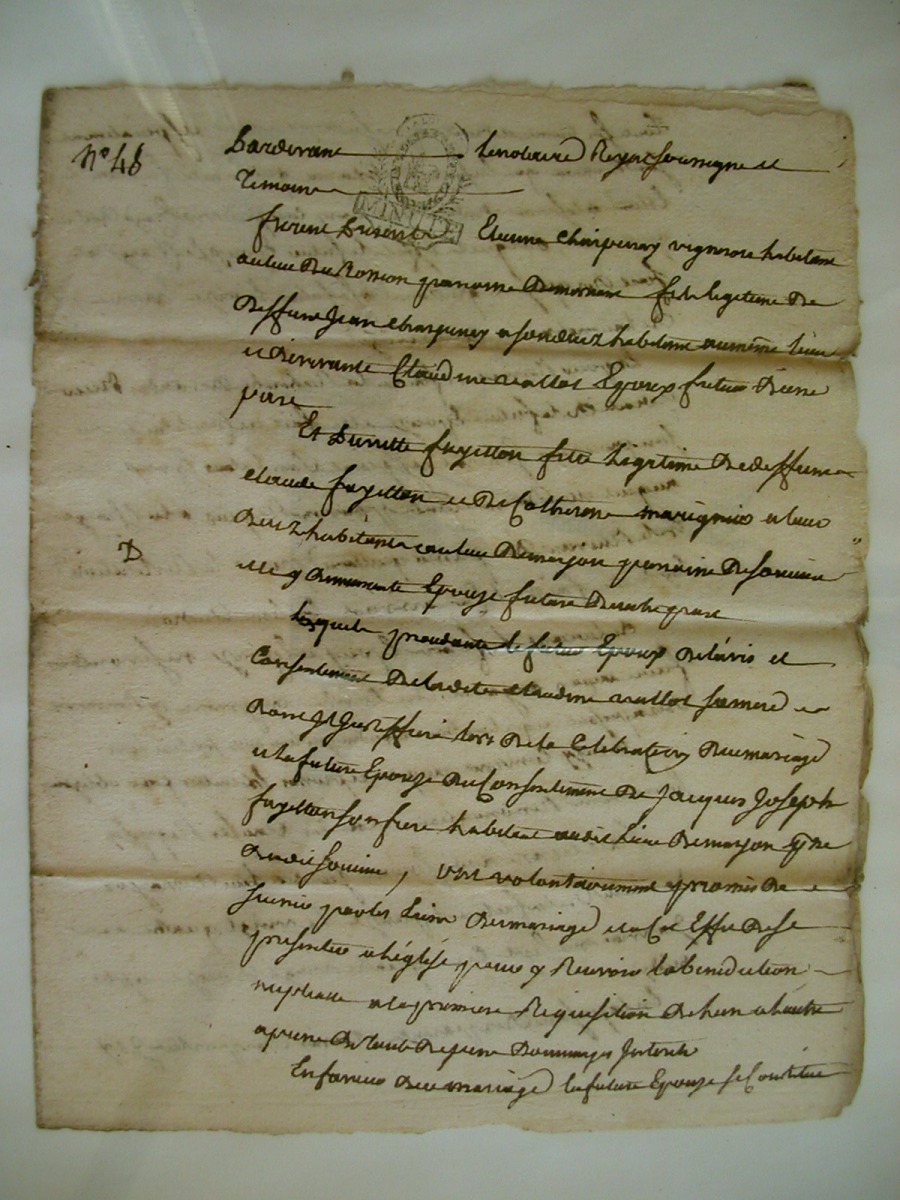 N° 48
Pardevant le notaire Royal soussigné et
Temoins
MINUTE
furent présents Etienne Charpenay vigneron habitant
au lieu du Rossion paroisse de mornant fils légitime de
deffunt Jean Charpenay a son deced habitant au même lieu
et de vivante Claudine vallot Epoux futur d'une
part
Et Pierrette fayetton fille Légitime de deffunt
claude fayetton et de Catherine marignier a leur
D
vivant habitants au lieu de marjon paroisse de
elle y demeurante Epouze future d'autre part
lesquels procedants le futur Epoux de l'avis et
Consentement de ladite claudine vallot sa mere
lors de la Celebration du mariage
et la future Epouze du Consentement de Jacques Joseph
fayetton son frere habitant audit Lieu de marjon psse
dudit, ont volontairement promis de
s'unir par les Liens du mariage et a Cet Effet de se
presenter a l'église pour y Recevoir la benediction
nuptiale a la premiere Requisition de l'un a l'autre
a peine de tout depens dommages Interets
En faveur du mariage la future Epouze se Constitue